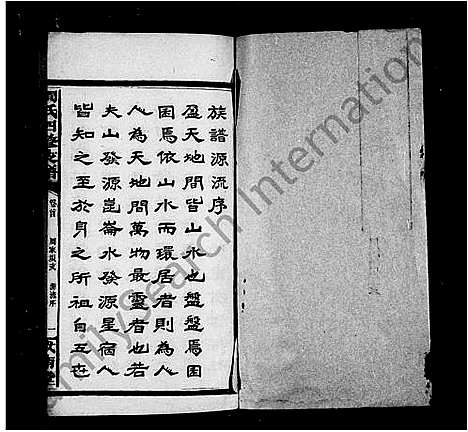 族譜源流序
盈天地間皆山水也盤盤焉囷
囷焉依山水而環居者則為人
人為天地間萬物最靈者也若
夫山發源崑崙水發源星宿人
皆知之至於身之所祖自五世
卷首
源流序
一
FamilySearch International